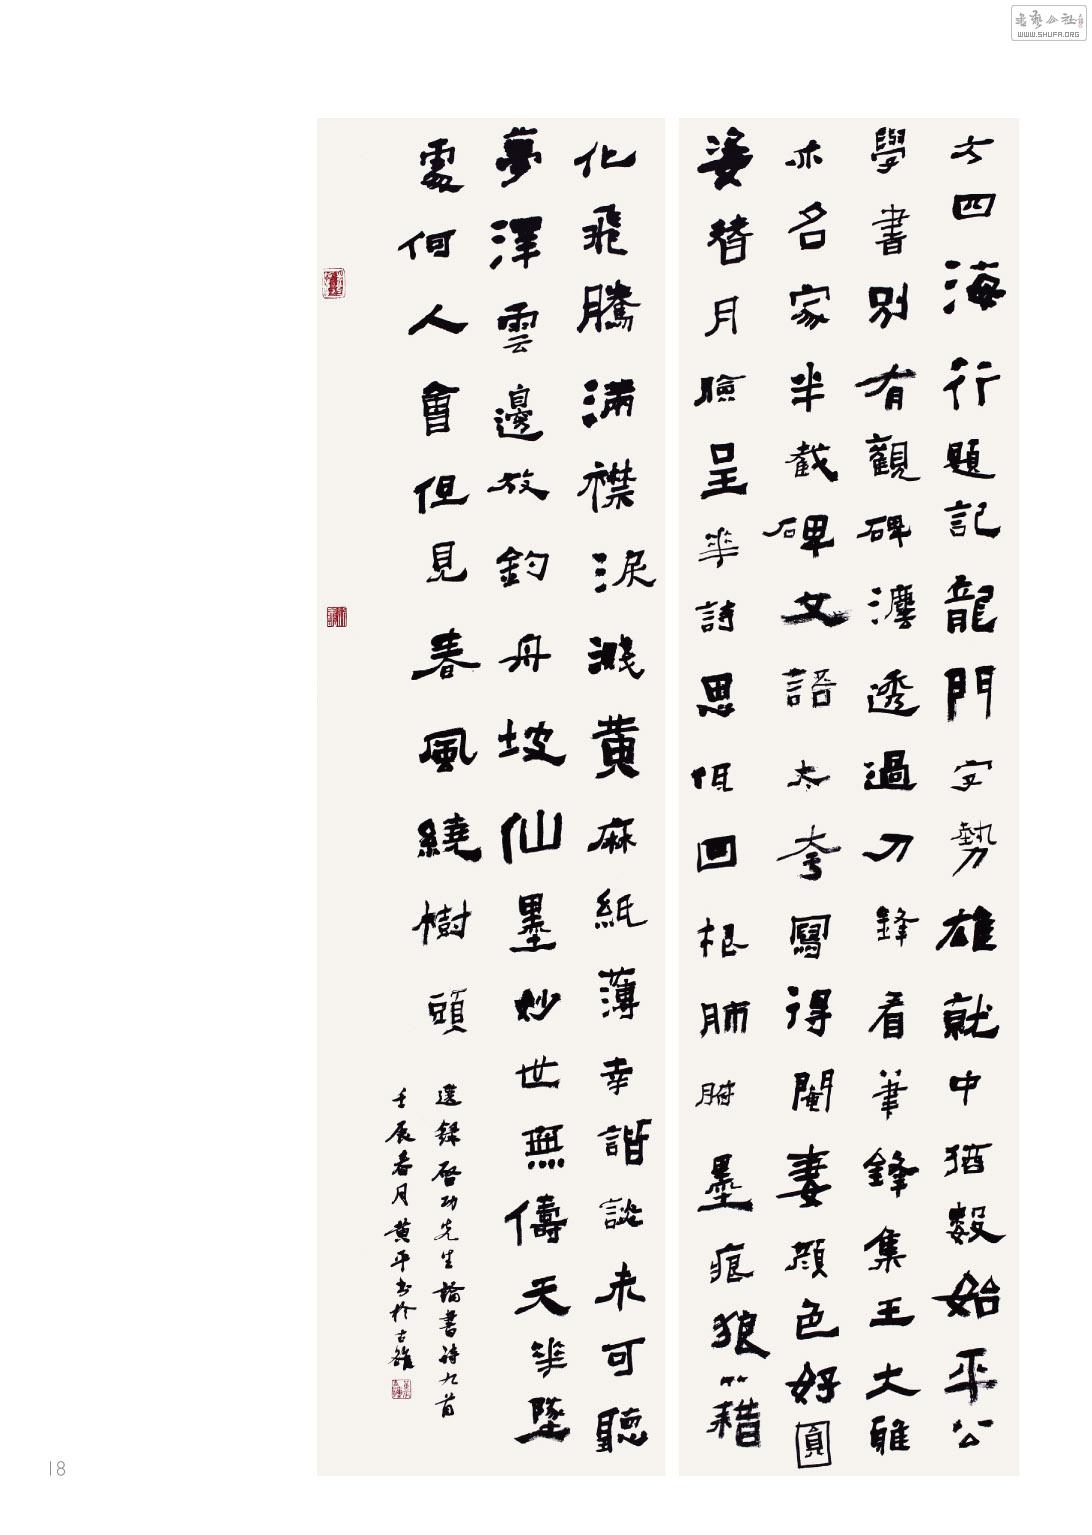 书艺公社
WWW.SHUFA.ORG
方四海行題記龍門字勢雄就中猶數始平公
學書別有觀碑灋透過刀鋒看筆鋒集王大雅
亦名家半截碑文語太夸寫得閹妻顏色好圓
姿替月臉呈華詩思低回根肺腑墨痕狼藉
化飛騰滿襟淚濺黃麻紙薄幸諧談未可聽
夢澤雲邊放釣舟坡仙墨妙世無儔天華墜
處何人會但見春風繞樹頭
選錄啓功先生論書詩九首
壬辰春月黃平書於古雒
18